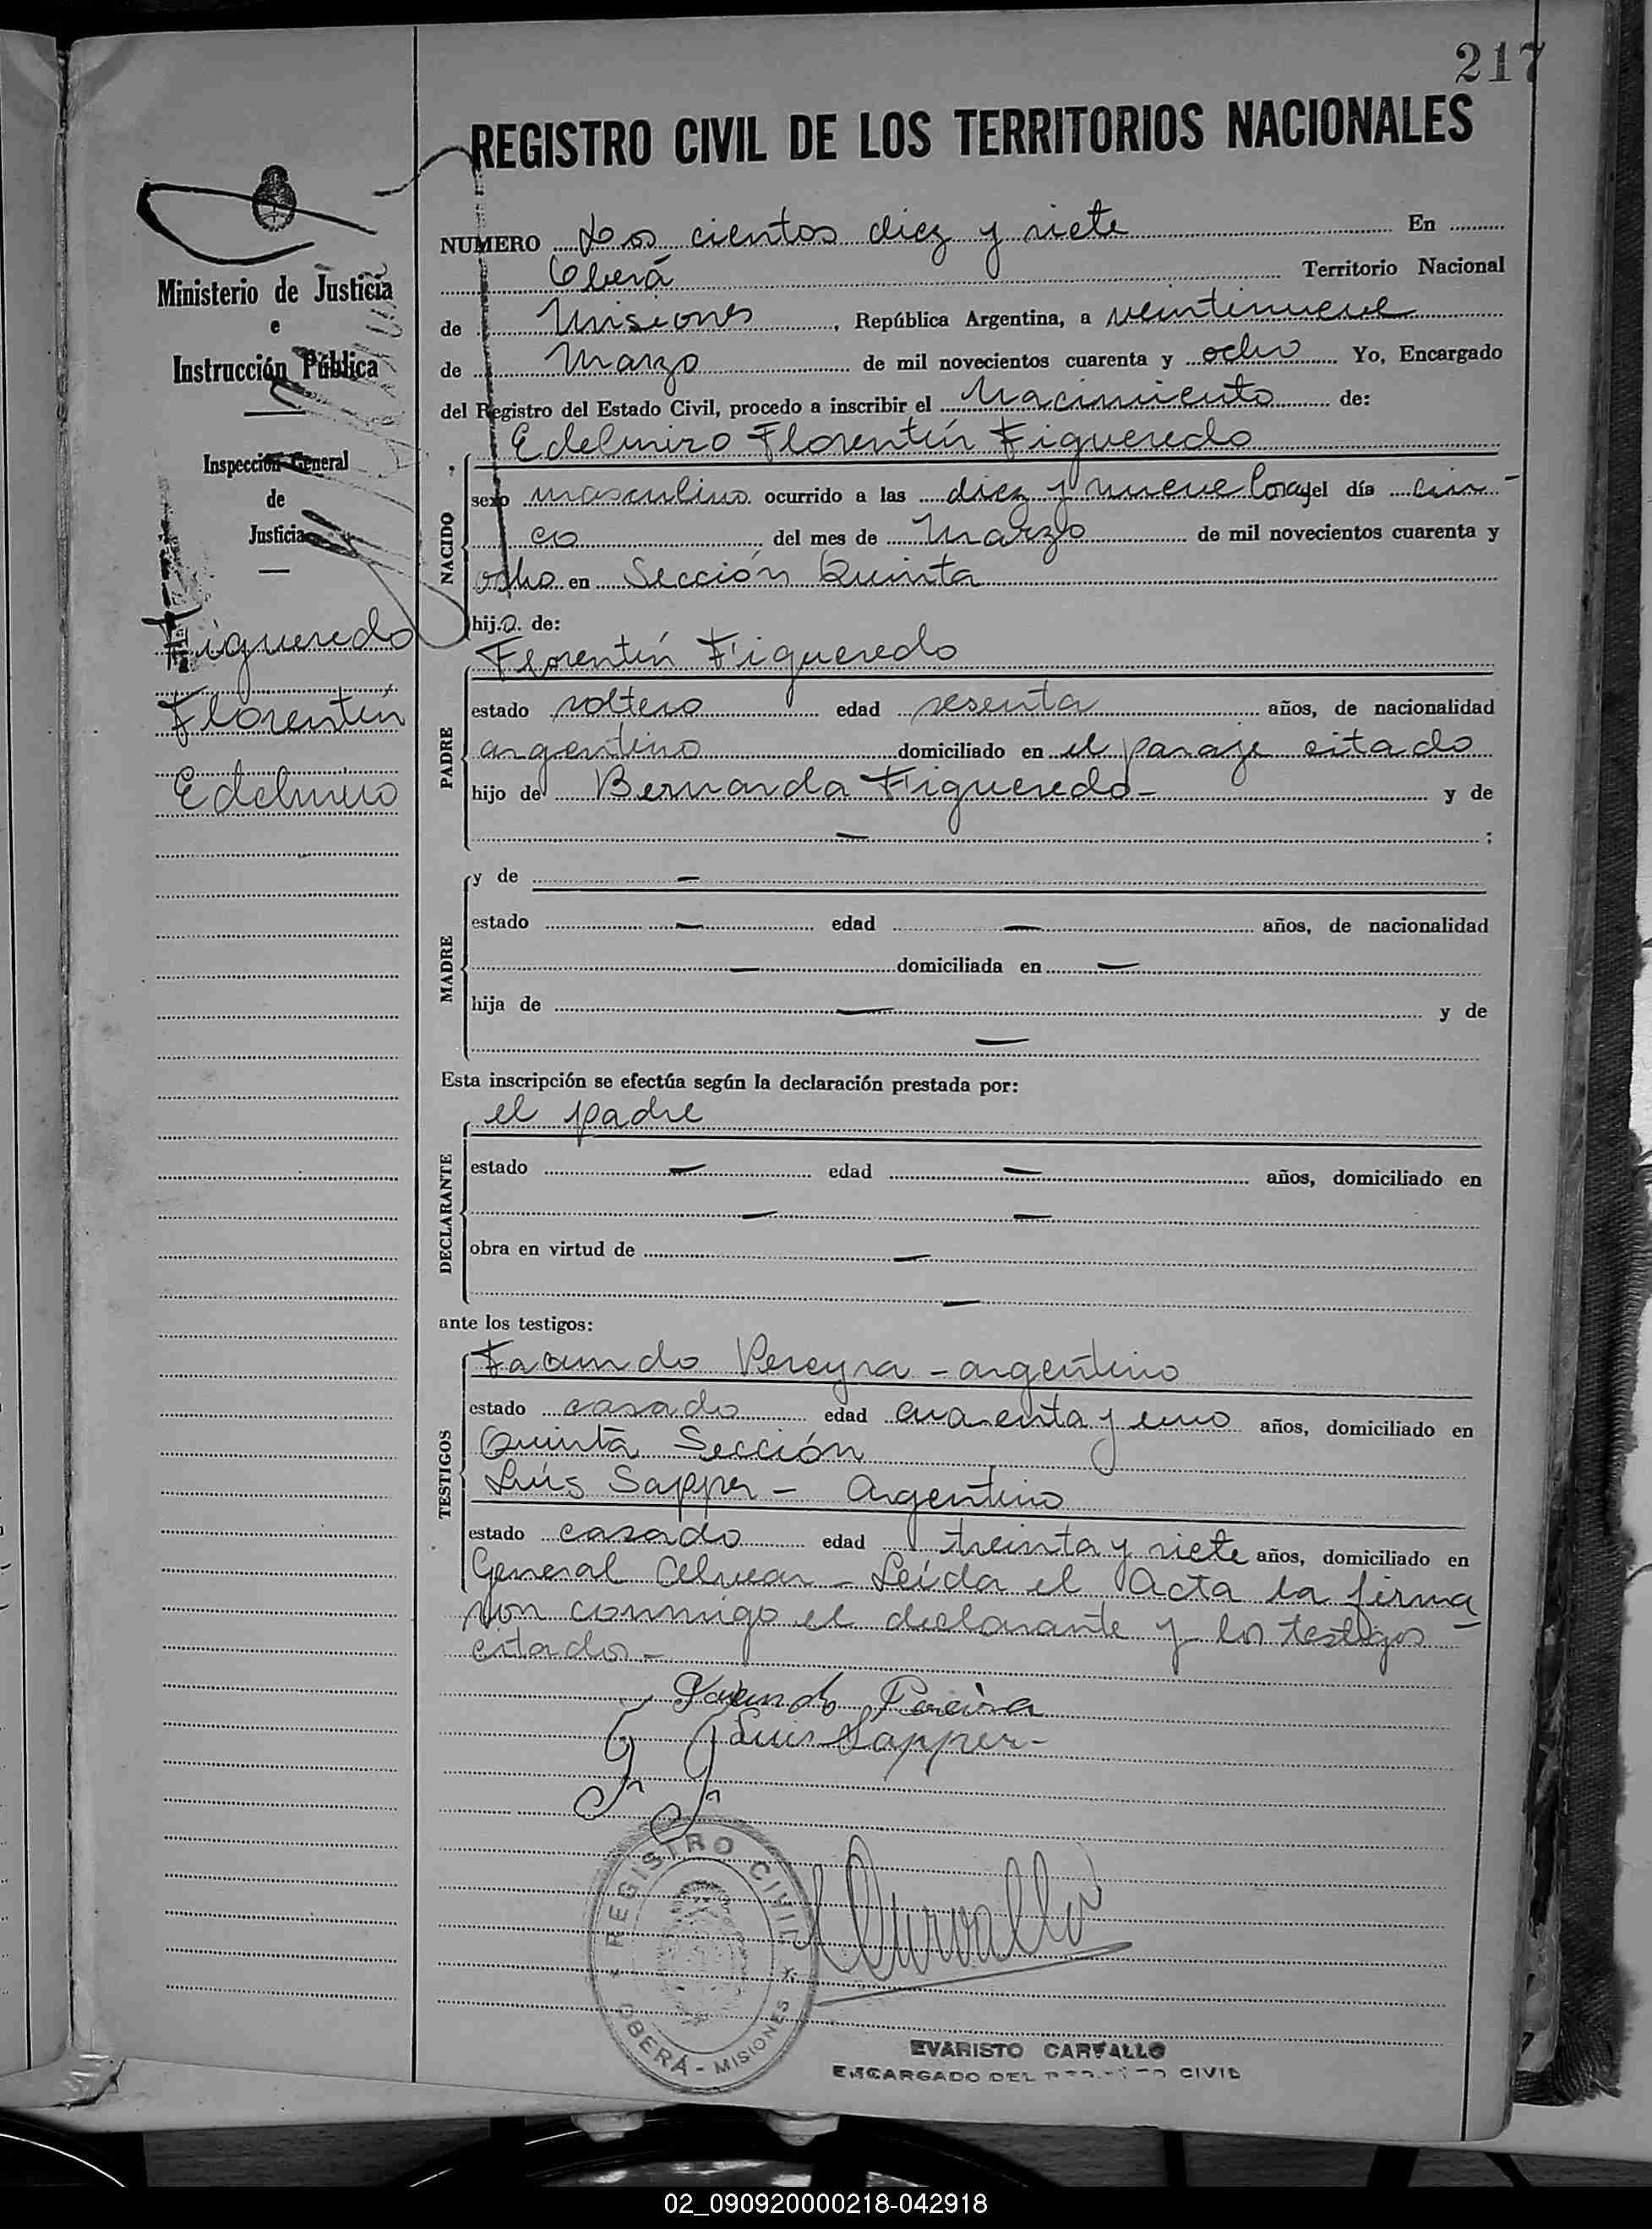 217
REGISTRO CIVIL DE LOS TERRITORIOS NACIONALES
NUMERO Dos cientos diez y siete En
Oberá Territorio Nacional
de Misiones, República Argentina, a veintinueve
de Marzo de mil novecientos cuarenta y ocho Yo, Encargado
del Registro del Estado Civil, procedo a inscribir el Nacimiento de:
Ministerio de Justicia
e
Instrucción Pública
Inspección General
de
Justicia
Figueredo
Florentín
Edelmiro
NACIDO
Edelmiro Florentín Figueredo
sexo masculino ocurrido a las diez y nueve horas del día cin-
co del mes de Marzo de mil novecientos cuarenta y
ocho en Sección Quinta
hijo de:
PADRE
Florentín Figueredo
estado soltero edad sesenta años, de nacionalidad
argentino domiciliado en el paraje citado
hijo de Bernarda Figueredo- y de
— ;
MADRE
y de —
estado — edad — años, de nacionalidad
— domiciliada en —
hija de — y de
—
Esta inscripción se efectúa según la declaración prestada por:
DECLARANTE
el padre
estado — edad — años, domiciliado en
— —
obra en virtud de —
—
ante los testigos:
TESTIGOS
Facundo Pereyra - argentino
estado casado edad cuarenta y uno años, domiciliado en
Quinta Sección
Luís Sapper - Argentino
estado casado edad treinta y siete años, domiciliado en
General Alvear - Leída el Acta la firma
ron conmigo el declarante y los testigos -
citados -
Facundo Pereira
Luis Sapper-
REGISTRO CIVIL
OBERÁ - MISIONES
Carvallo
EVARISTO CARVALLO
ENCARGADO DEL REGISTRO CIVIL
02_090920000218-042918